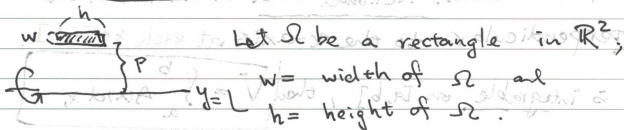 h
w
Let Ω be a rectangle in ℝ²;
P
w= width of Ω and
y=L
h= height of Ω.